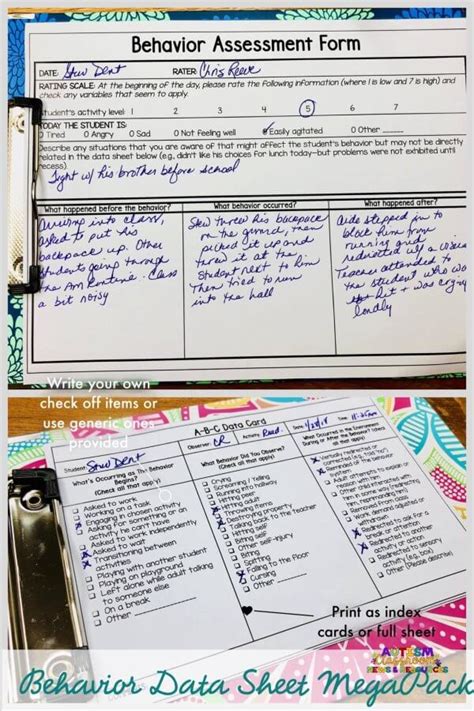 Behavior Assessment Form
DATE: Stew Dent RATER: Chris Reeve
RATING SCALE: At the beginning of the day, please rate the following information (where 1 is low and 7 is high) and
check any variables that seem to apply.
Student's activity level 1 2 3 4 5 6 7
TODAY THE STUDENT IS:
Tired Angry Sad Not Feeling well Easily agitated Other
Describe any situations that you are aware of that might affect the student's behavior but may not be directly
related in the data sheet below (e.g. didn't like his choices for lunch today—but problems were not exhibited until
recess).
Fight w/ his brother before school
What happened before the behavior? What behavior occurred? What happened after?
Arriving into class,
asked to put his
backpack up. Other
students going through
the AM Routine. Class
a bit noisy
Stew threw his backpack
on the ground, then
picked it up and
threw it at the
student next to him
Then tried to run
into the hall
Aide stepped in to
block him from
running and
redirected w/ a
Teacher attended to
the student who was
hit + was crying
loudly
Write your own
check off items or
use generic ones
provided
A-B-C Data Card
Student: Stew Dent Observer: CR Activity: Read. 1/28/18 Time: 11:25am
What's Occurring as the Behavior
Begins?
(Check all that apply)
Asked to work
Working on a task
Engaging in chosen activity
Asking for something or activity
s/he can't have
Asked to work independently
Asked to wait
Transitioning between
activities
Playing on playground
Playing with another student
Left alone while adult talking
to someone else
On a break
Other
What Behavior Did You Observe?
(Check all that apply)
Crying
Screaming / Yelling
Running into hallway
Hitting peer
Hitting adult
Throwing items
Destroying property
Talking back to the teacher
Hitting self
Biting self
Other self-injury
Spitting
Biting
Falling to the floor
Cursing
Other
What Occurred in the Environment
During or After the Behavior?
(Check all that apply)
Verbally redirected or
corrected (e.g. told "no")
Reminded of the behavior
system
Adult attempts to explain or
reason with him
Peers interacted with
Removed demand
Redirected to ask for a
break or attention
Redirected to another
activity or action
Redirected to sensory
activity (e.g. box)
Other (Please describe)
Print as index
cards or full sheet
AUTISM
Classroom
NEWS & RESOURCES
Behavior Data Sheet MegaPack